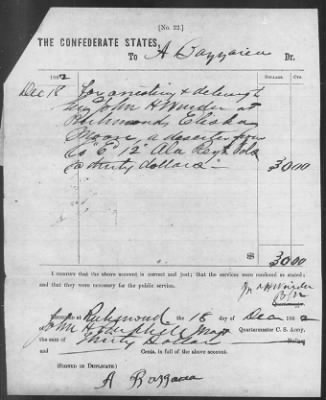 [No. 22.]
THE CONFEDERATE STATES,
To A Bazzarea Dr.
1862 DOLLARS. CTS.
Dec 18 for arresting & delivering
Gen John H Winder at
Richmond, Elisha
Moore, a deserter from
Co "E" 12" Ala Regt Vols
thirty dollars 30 00
$ 30 00
I CERTIFY that the above account is correct and just; that the services were rendered as stated;
and that they were necessary for the public service.
Jno H Winder
RECEIVED at Richmond the 18 day of Dec 1862
John H Quartermaster C. S. Army,
the sum of Thirty Dollars
and Cents, in full of the above account.
(SIGNED IN DUPLICATE.)
A Bazzarea